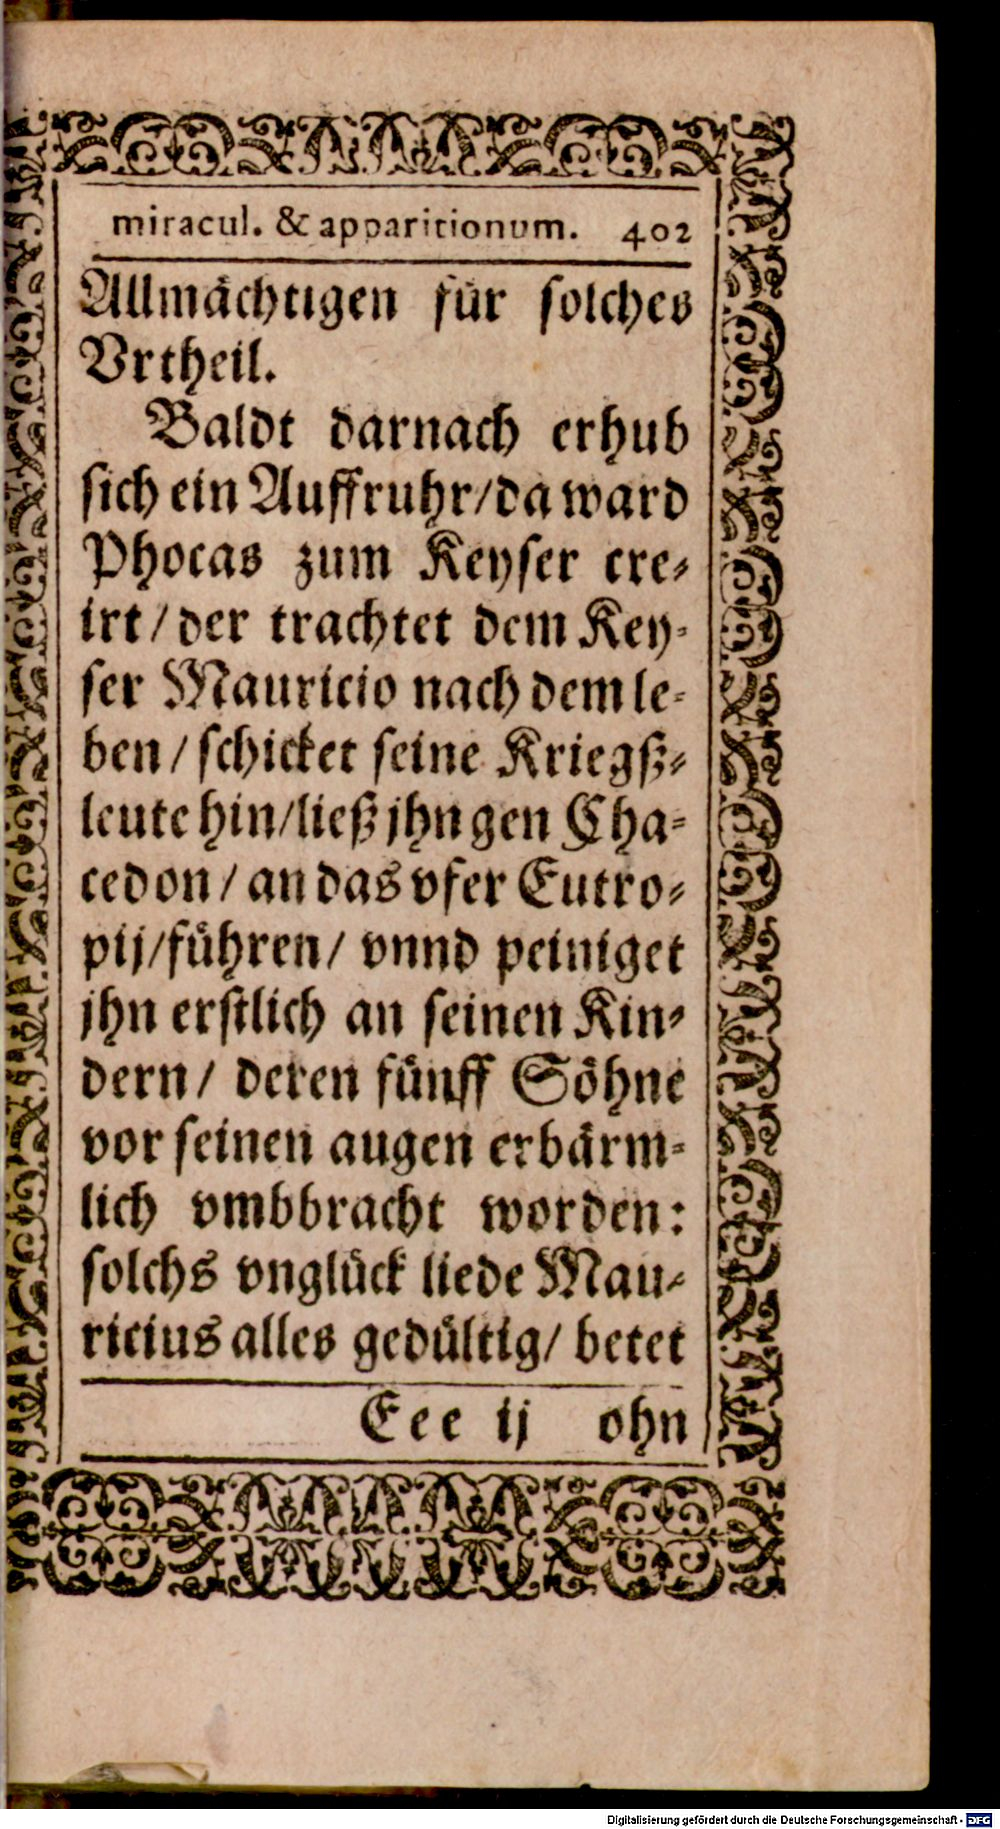 miracul. & apparitionum. 402
Allmächtigen für solches
Vrtheil.
Baldt darnach erhub
sich ein Auffruhr/da ward
Phocas zum Keyser cre-
irt/ der trachtet dem Key-
ser Mauricio nach dem le-
ben/ schicket seine Kriegß-
leute hin/ließ jhn gen Cha-
cedon/ an das vfer Eutro-
pij/führen/ vnnd peiniget
jhn erstlich an seinen Kin-
dern/ deren fünff Söhne
vor seinen augen erbärm-
lich vmbbracht worden:
solchs vnglück liede Mau-
ricius alles gedültig/ betet
Eee ij ohn
Digitalisierung gefördert durch die Deutsche Forschungsgemeinschaft - DFG